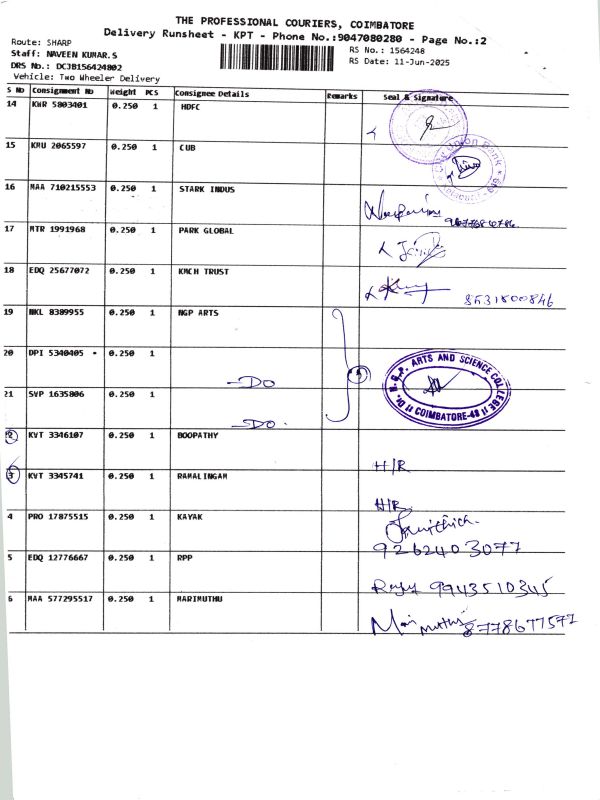 THE PROFESSIONAL COURIERS, COIMBATORE
Delivery Runsheet - KPT - Phone No.:9047080280 - Page No.:2
Route: SHARP
RS No.: 1564248
Staff: NAVEEN KUMAR.S
RS Date: 11-Jun-2025
DRS No.: DCJB156424802
Vehicle: Two Wheeler Delivery
S No Consignment No Weight PCS Consignee Details Remarks Seal & Signature
14 KWR 5803401 0.250 1 HDFC
15 KMU 2065597 0.250 1 CUB
City Union Bank
16 MAA 710215553 0.250 1 STARK INDUS
17 MTR 1991968 0.250 1 PARK GLOBAL
18 EDQ 25677072 0.250 1 KMCH TRUST
8531800846
19 NKL 8389955 0.250 1 NGP ARTS
20 DPI 5340405 0.250 1
DO
Dr. N.G.P. ARTS AND SCIENCE COLLEGE
COIMBATORE-48
21 SVP 1635806 0.250 1
DO
2 KVT 3346107 0.250 1 BOOPATHY
H/R
3 KVT 3345741 0.250 1 RAMALINGAM
H/R
4 PRO 17875515 0.250 1 KAYAK
9262403077
5 EDQ 12776667 0.250 1 RPP
9943510345
6 MAA 577295517 0.250 1 MARIMUTHU
Mari muthu 8778677577